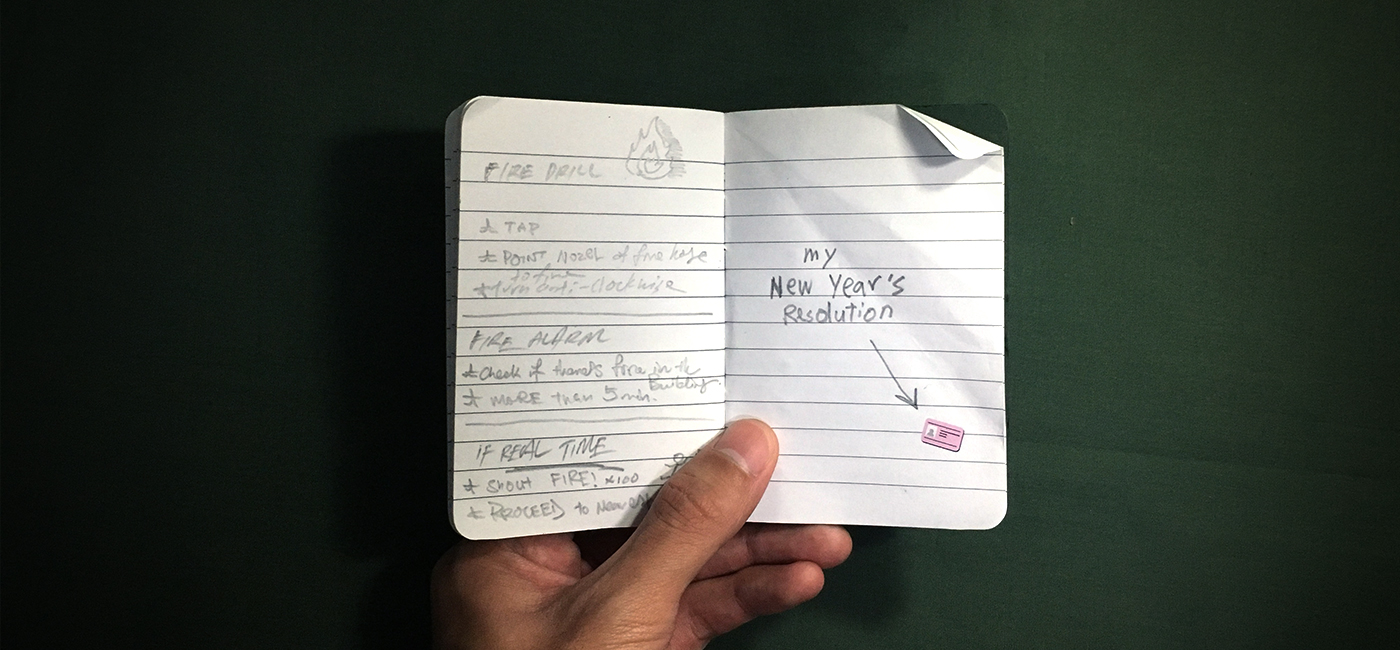 FIRE DRILL
TAP
POINT Nozel of fire hose
to fire
turn anti-clockwise
FIRE ALARM
Check if there's fire in the
Building.
MORE than 5 min.
IF REAL TIME
Shout FIRE! x100
PROCEED to Nearest
my
New Year's
Resolution